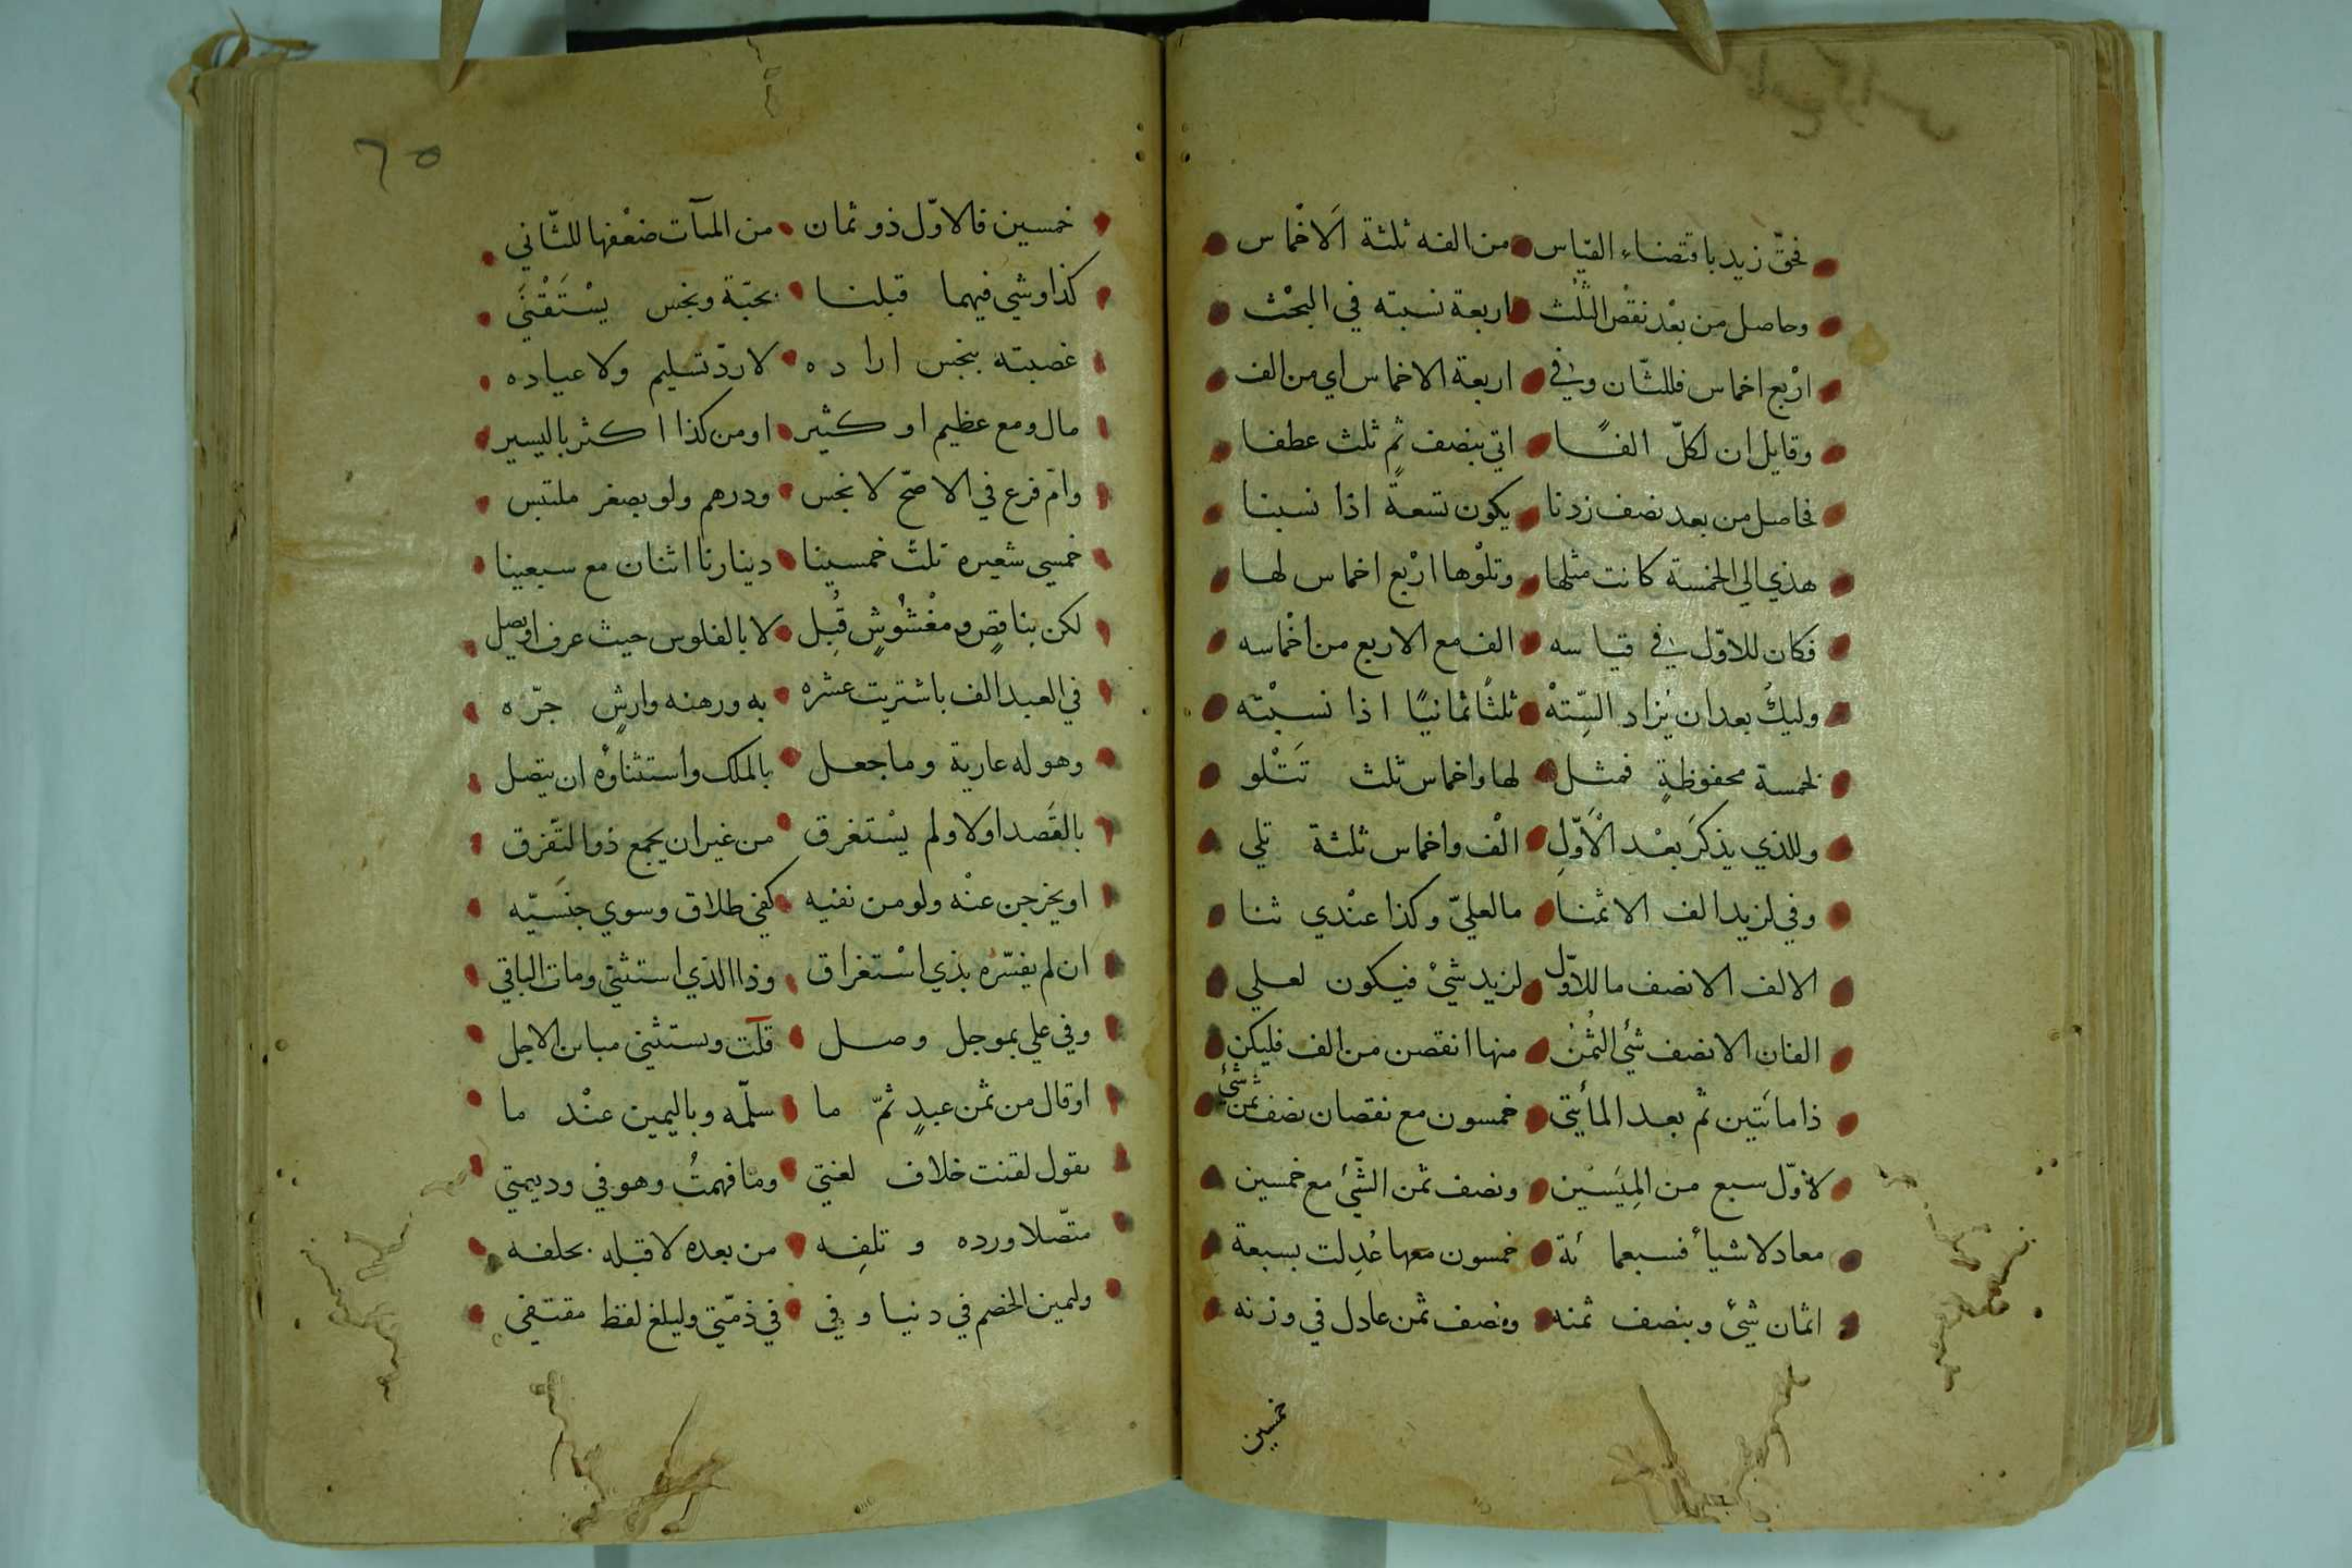 فحقّ زيد باقتضاء القياس من الفه ثلثة الاخْماس
وحاصل من بعْد نقْص الثُلْث اربعة نسبته في البحْث
ارْبع اخماس فللثّان وفي اربعة الاخماس اي من الف
وقايل ان لكلّ الفًا اتي بنصف ثم ثلث عطفا
فحاصل من بعد نصف زدنا يكون تسعةً اذا نسبنا
هذي الي الخمسة كانت مثلها وتلْوها ارْبع اخماس لها
فكان للاوّل في قياسه الف مع الاربع من اخْماسه
وليكُ بعد ان يُزاد السِّتهْ ثلثًا ثمانيًا اذا نسبْته
لخمسة محفوظةٍ فمثل لها واخماس ثلث تَتْلو
وللذي يذكرَ بعْد الْاَوّلِ الْف واخماس ثلثة تلي
وفي لزيد الف الا ثمنا ما لعليّ وكذا عنْدي ثنا
الالف الا نصف ما للاوّل لزيد شيْ فيكون لعلي
الفان الا نصف شئ الثُمْنُ منها انقصن من الف فليكن
ذا مائتين ثم بعد المأيتي خمسون مع نقصان نصف ثمن شئ
لاوّل سبع من المِيَسْين ونصف ثمن الشّئ مع خمسين
معاد لاشيأ فسبعمائة خمسون معها عُدِلت بسبعة
اثمان شئ وبنصف ثمنه ونصف ثمن عادل في وزنه
خمسين
٦٥
خمسين فالاوّل ذو ثمان من المآت ضعْفها للثّاني
كذا وشي فيهما قبلنا بحبّة ونجس يسْتَقْنَي
غصبته بنجس اراده لا ردّ تسليم ولا عياده
مال ومع عظيم او كثير او من كذا اكثر باليسير
وامّ فرع في الاصحّ لا نجس ودرهم ولو بصغر ملتبس
خمسي شعيره ثلث خمسينا دينارنا اثنان مع سبعينا
لكن بناقصٍ ومغْشُوشٍ قُبِل لا بالفلوس حيث عرف او يصل
في العبد الف باشتريت عشره به ورهنه وارشٍ جرّه
وهو له عارية وما جعل بالملك واستثناؤه ان يتصل
بالقَصد اولا ولم يسْتغرق من غير ان يجمع ذو التّفرق
او يخرجن عنْه ولو من نفيه كفي طلاق وسوي جنسَيّه
ان لم يفسّره بذي اسْتغراق وذا الذي استثني ومات الباقي
وفي علي بموجل وصل قلت ويستثني مباين الاجل
او قال من ثمن عبدٍ ثمّ ما سلّمه وباليمين عنْد ما
يقول لقنت خلاف لغتي وما فهمتُ وهو في وديعتي
متّصلا ورده و تلفِه من بعده لا قبله بحلفه
وليمين الخصم في دنيا وفي في ذمّتي وليلغ لفظ مقتفي